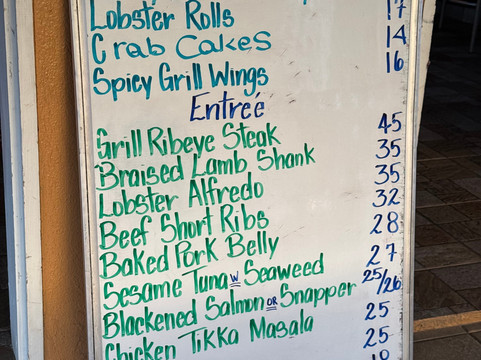 Lobster Rolls 17
Crab Cakes 14
Spicy Grill Wings 16
Entreé
Grill Ribeye Steak 45
Braised Lamb Shank 35
Lobster Alfredo 35
Beef Short Ribs 32
Baked Pork Belly 28
Sesame Tuna w Seaweed 27
Blackened Salmon OR Snapper 25/26
Chicken Tikka Masala 25
25